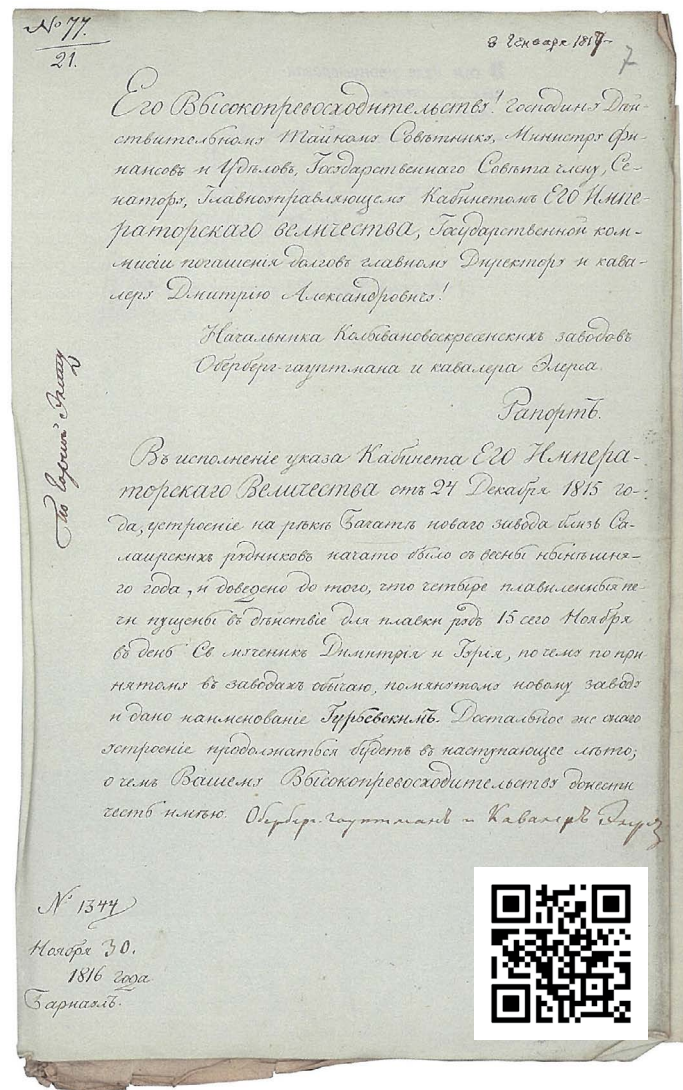 № 77.
21.
8 Генваря 1817
7
Его Высокопревосходительству! господину Дѣй-
ствительному Тайному Совѣтнику, Министру фи-
нансовъ и Удѣловъ, Государственнаго Совѣта члену, Се-
натору, Главноуправляющему Кабинетомъ ЕГО Импе-
раторскаго величества, Государственной ком-
мисіи погашенія долговъ главному Директору и кава-
леру Дмитрію Александровичу!
Начальника Колывановоскресенскихъ заводовъ
Обербергъ-гауптмана и кавалера Элерса
Рапортъ.
Въ исполненіе указа Кабинета ЕГО Импера-
торскаго Величества отъ 24 Декабря 1815 го-
да, устроеніе на рѣкѣ Бачатѣ новаго завода близь Са-
лаирскихъ рудниковъ начато было съ весны нынѣшня-
го года, и доведено до того, что четыре плавиленныя пе-
чи пущены въ дѣйствіе для плавки рудъ 15 сего Ноября
въ день Св мученикъ Димитрія и Гурія, по чему по при-
нятому въ заводахъ обычаю, помянутому новому заводу
и дано наименованіе Гурьевскимъ. Достальное же онаго
устроеніе продолжаться будетъ въ наступающее лѣто;
о чемъ Вашему Высокопревосходительству донести
честь имѣю. Обербергъ-гауптманъ и Кавалеръ Элерсъ
По горной
№ 1344
Ноября 30.
1816 года
Барнаулъ.